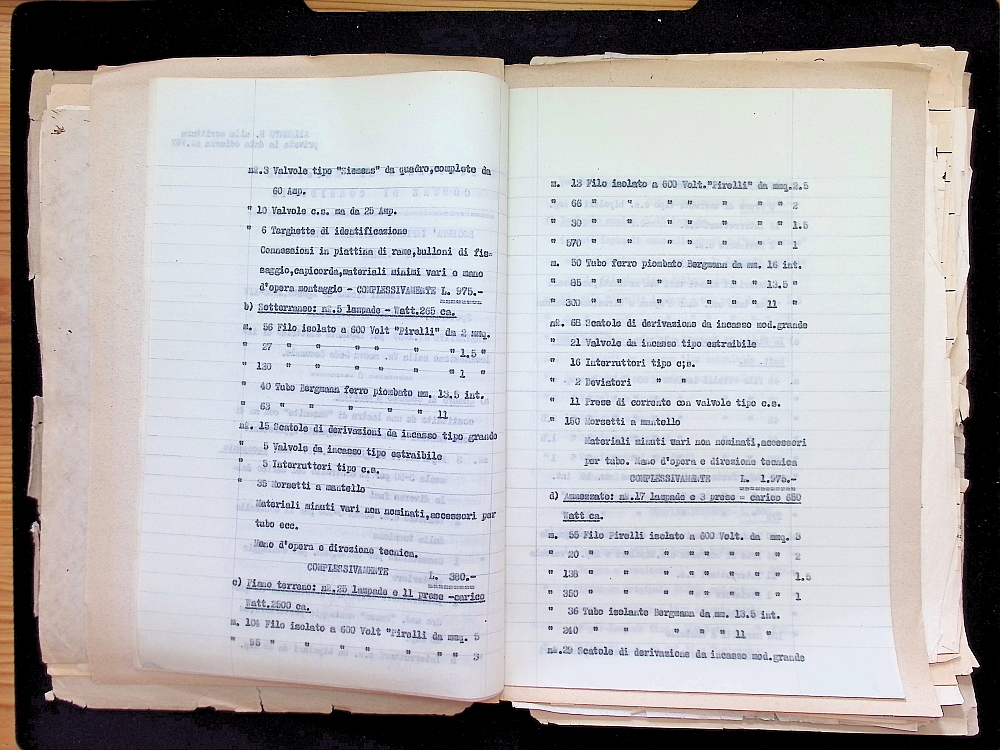 n°.3 Valvole tipo "Siemens" da quadro,complete da
60 Amp.
" 10 Valvole c.s. ma da 25 Amp.
" 6 Targhette di identificazione
Connessioni in piattina di rame,bulloni di fis=
saggio,capicorda,materiali minimi vari e mano
d'opera montaggio - COMPLESSIVAMENTE L. 975.-
b) Sotterraneo: n°.5 lampade - Watt.265 ca.
m. 56 Filo isolato a 600 Volt "Pirelli" da 2 mmq.
" 27 " " " " " " 1.5 "
" 130 " " " " " " 1 "
" 40 Tubo Bergmann ferro piombato mm. 13.5 int.
" 63 " " " " " 11
n°. 15 Scatole di derivazioni da incasso tipo grande
" 5 Valvole da incasso tipo estraibile
" 5 Interruttori tipo c.s.
" 35 Morsetti a mantello
Materiali minuti vari non nominati,accessori per
tubo ecc.
Mano d'opera e direzione tecnica.
COMPLESSIVAMENTE L. 380.-
c) Piano terreno: n°.25 lampade e 11 prese -carico
Watt.2500 ca.
m. 104 Filo isolato a 600 Volt "Pirelli da mmq. 5
" 95 " " " " " " 3
m. 13 Filo isolato a 600 Volt."Pirelli" da mmq.2.5
" 66 " " " " " " " 2
" 30 " " " " " " " 1.5
" 570 " " " " " " " 1
m. 50 Tubo ferro piombato Bergmann da mm. 16 int.
" 85 " " " " " " 13.5 "
" 300 " " " " " " 11 "
n°. 68 Scatole di derivazione da incasso mod.grande
" 21 Valvole da incasso tipo estraibile
" 16 Interruttori tipo c;s.
" 2 Deviatori " "
" 11 Prese di corrente con valvole tipo c.s.
" 150 Morsetti a mantello
Materiali minuti vari non nominati,accessori
per tubo. Mano d'opera e direzione tecnica
COMPLESSIVAMENTE L. 1.975.-
d) Ammezzato: n°.17 lampade e 3 prese = carico 650
Watt ca.
m. 55 Filo Pirelli isolato a 600 Volt. da mmq. 3
" 20 " " " " " " " 2
" 138 " " " " " " " 1.5
" 350 " " " " " " " 1
" 36 Tubo isolante Bergmann da mm. 13.5 int.
" 240 " " " " " 11 "
n°.29 Scatole di derivazione da incasso mod.grande